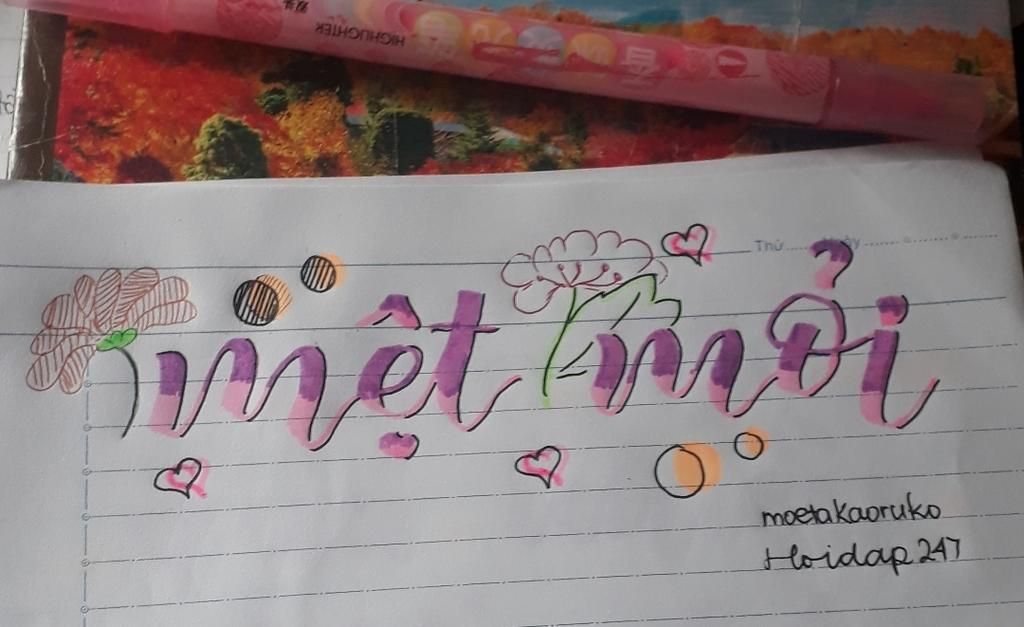 HIGHLIGHTER
Thứ......Ngày
mệt mỏi
moetakaoruko
Hoidap247